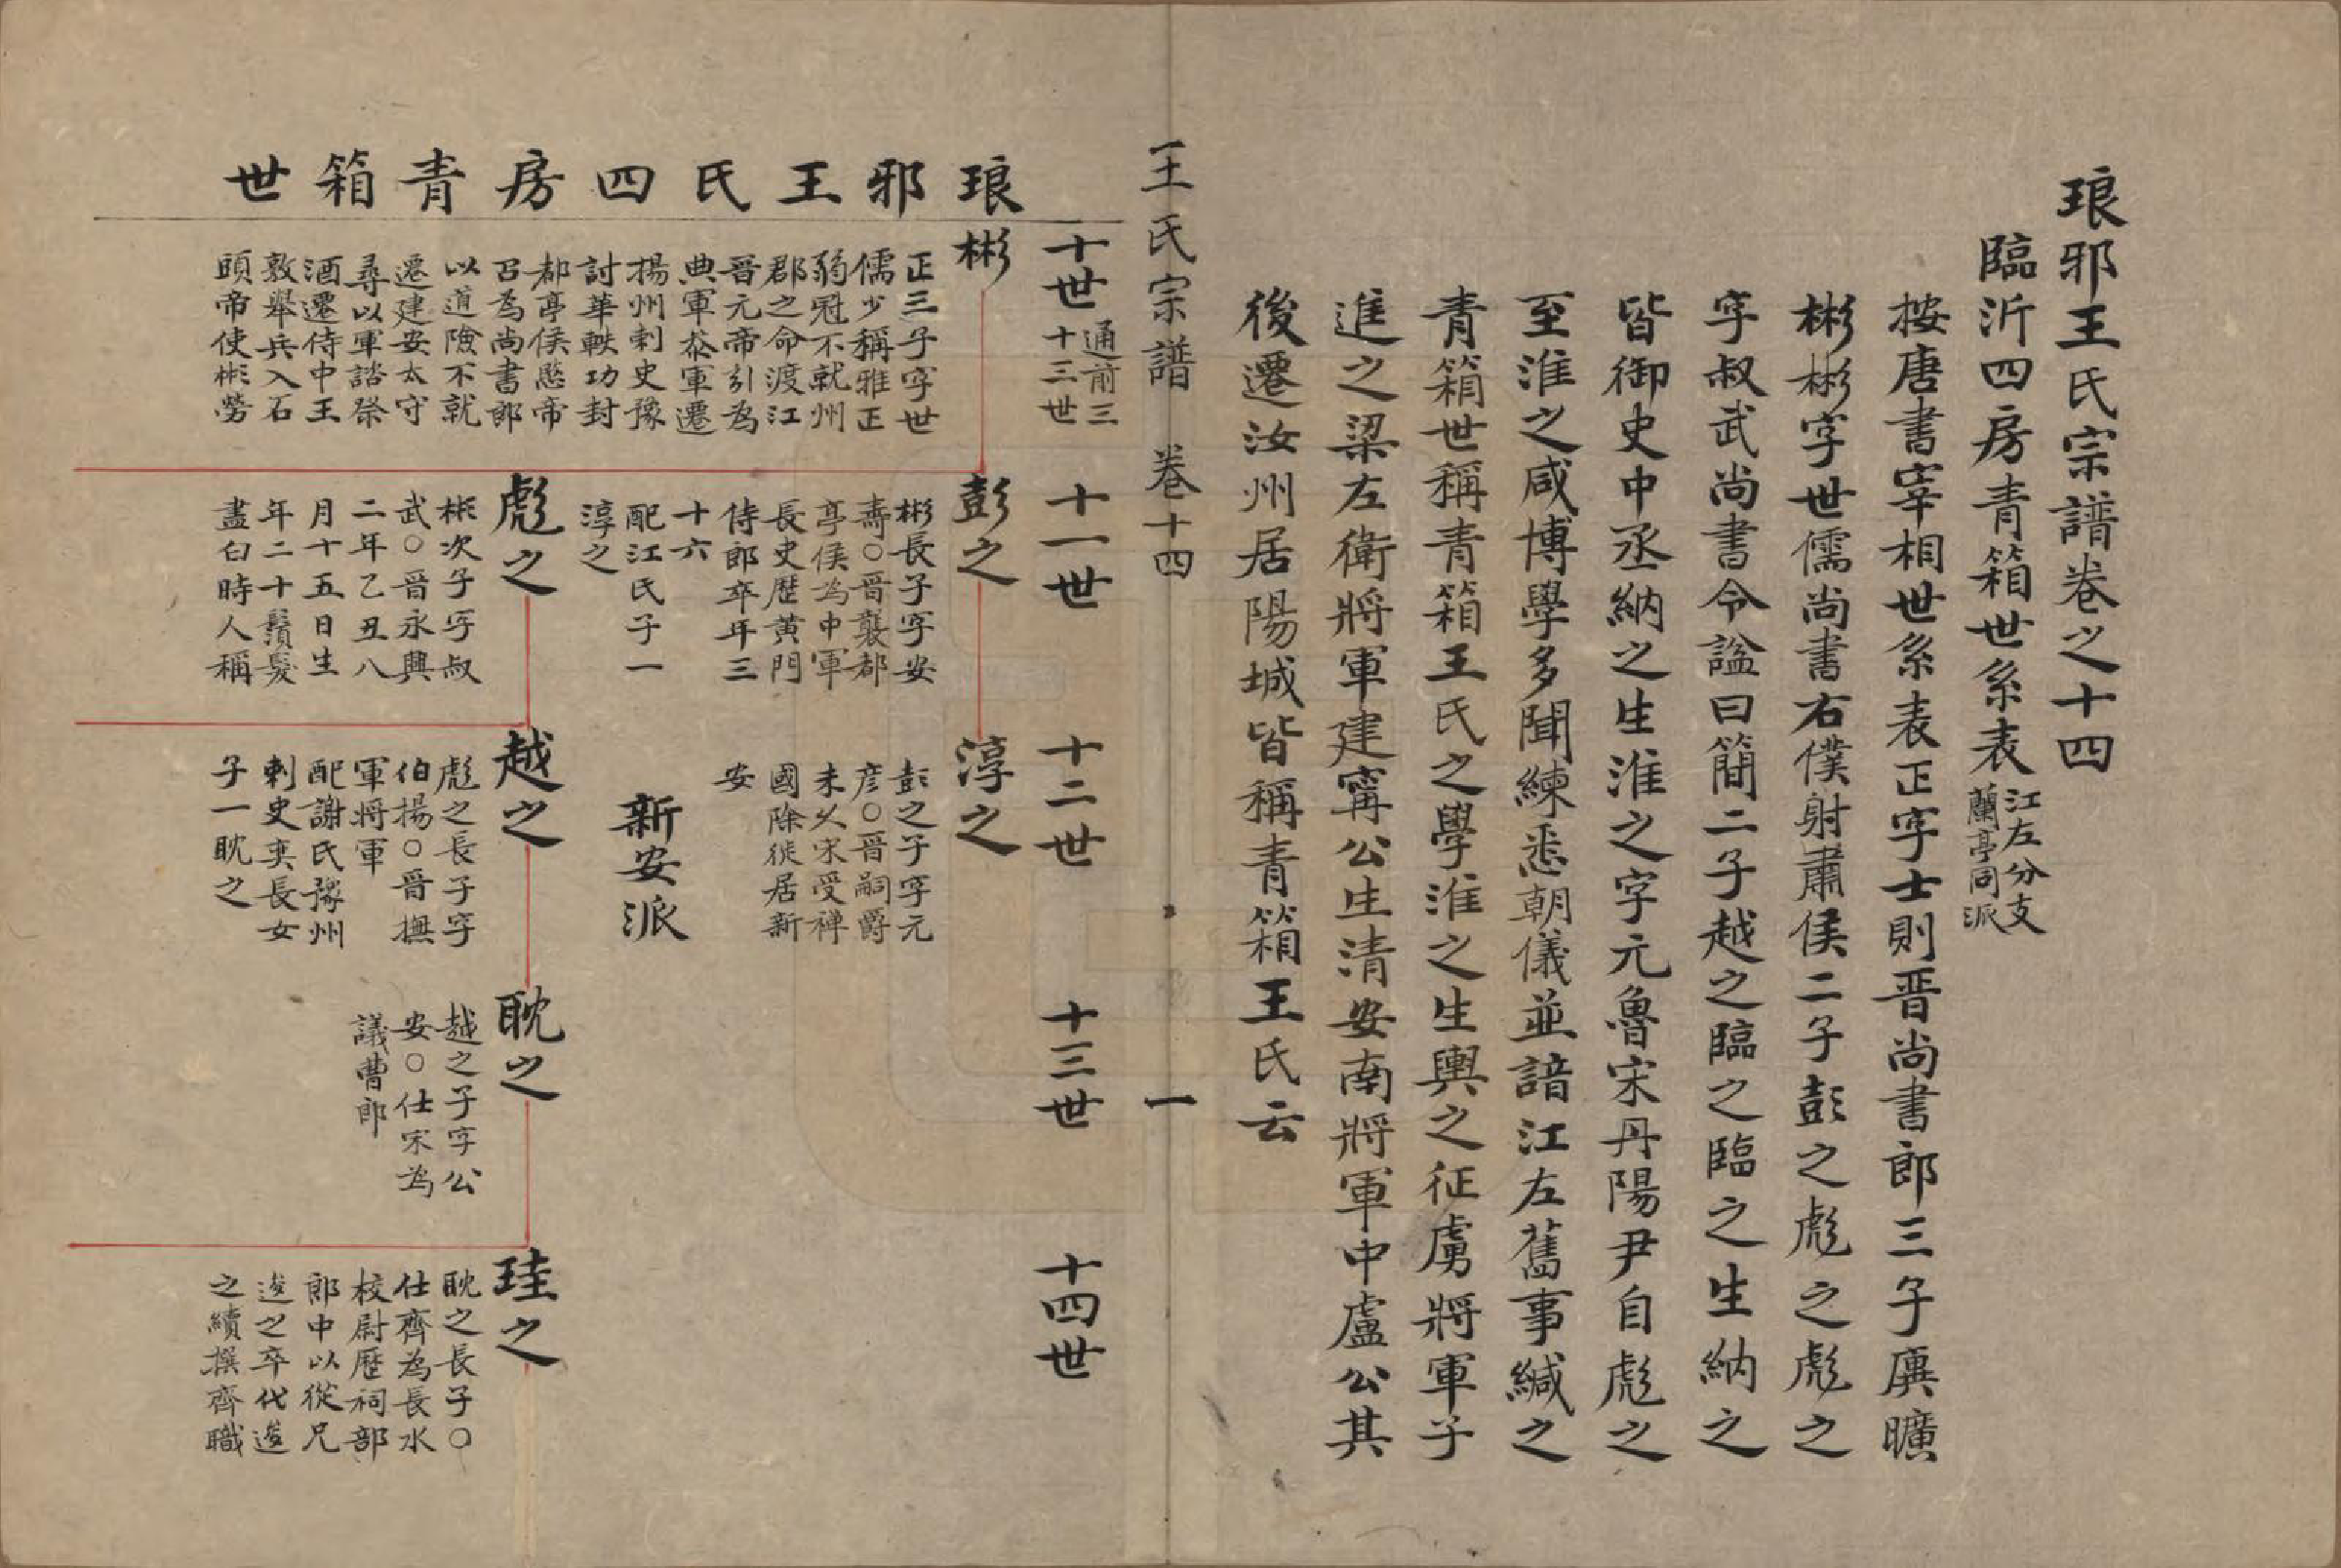 琅邪王氏宗譜卷之十四
臨沂四房青箱世系表
江左分支
蘭亭同派
按唐書宰相世系表正字士則晋尚書郎三子廙曠
彬彬字世儒尚書右僕射肅侯二子彭之彪之彪之
字叔武尚書令諡曰簡二子越之臨之臨之生納之
皆御史中丞納之生淮之字元魯宋丹陽尹自彪之
至淮之咸博學多聞練悉朝儀並諳江左舊事緘之
青箱世稱青箱王氏之學淮之生輿之征虜將軍子
進之梁左衛將軍建甯公生清安南將軍中盧公其
後遷汝州居陽城皆稱青箱王氏云
王氏宗譜 卷十四 一
琅邪王氏四房青箱世
十世
通前三
十三世
十一世
十二世
十三世
十四世
彬
正三子字世
儒少稱雅正
弱冠不就州
郡之命渡江
晋元帝引為
典軍叅軍遷
揚州刺史豫
討華軼功封
都亭侯愍帝
召為尚書郎
以道險不就
遷建安太守
尋以軍諮祭
酒遷侍中王
敦舉兵入石
頭帝使彬勞
彭之
彬長子字安
壽○晋襲都
亭侯為中軍
長史歷黃門
侍郎卒年三
十六
配江氏子一
淳之
淳之
彭之子字元
彥○晋嗣爵
未久宋受禅
國除徙居新
安
新安派
彪之
彬次子字叔
武○晋永興
二年乙丑八
月十五日生
年二十鬚髮
盡白時人稱
越之
彪之長子字
伯揚○晋撫
軍將軍
配謝氏豫州
刺史奕長女
子一耽之
耽之
越之子字公
安○仕宋為
議曹郎
珪之
耽之長子○
仕齊為長水
校尉歷祠部
郎中以從兄
逡之卒代逡
之續撰齊職